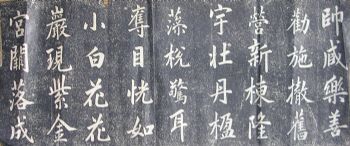 帥咸樂善
勸施撤舊
營新棟隆
宇壯丹楹
藻梲驚耳
奪目恍如
小白花花
巖現紫金
宮闕落成